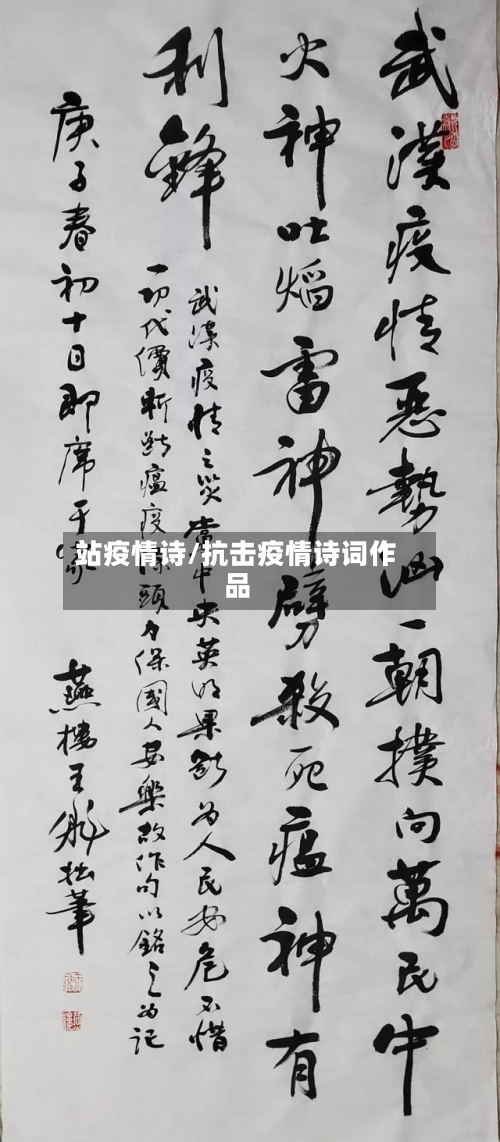 武漢疫情惡勢汹一朝撲向萬民中
火神吐焰雷神劈殺死瘟神有
利鋒
武漢疫情之災當中央英明果斷为人民安危不惜
一切代價斬斷瘟疫源頭力保國人安樂故作句以銘之为記
庚子春初十日即席于
燕樓王 拙筆
站疫情诗/抗击疫情诗词作
品